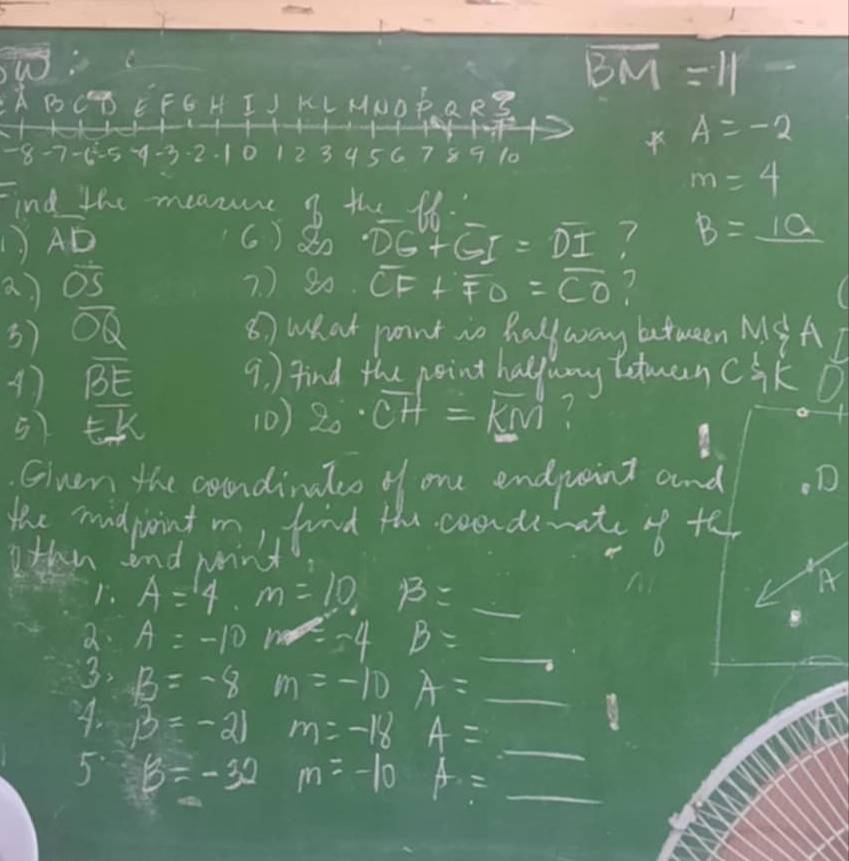 OW :
BM = 11
A B C D E F G H I J K L M N O P Q R S
-8 -7 -6 -5 -4 -3 -2 -1 0 1 2 3 4 5 6 7 8 9 10
* A = -2
m = 4
B = 10
Find the measure of the ff:
1.) AD
2.) OS
3) OQ
4) BE
5) EK
6.) Is DG + GI = DI ?
7.) Is CF + FO = CO?
8.) What point is halfway between M & A
9.) Find the point halfway between C & K
10) Is CH = KM ?
Given the coordinates of one endpoint and
the midpoint m, find the coordinate of the
other end point.
1. A = 4 m = 10 B = __
2. A = -10 m = -4 B = __
3. B = -8 m = -10 A = __
4. B = -21 m = -18 A = __
5. B = -32 m = -10 A = __
D
A